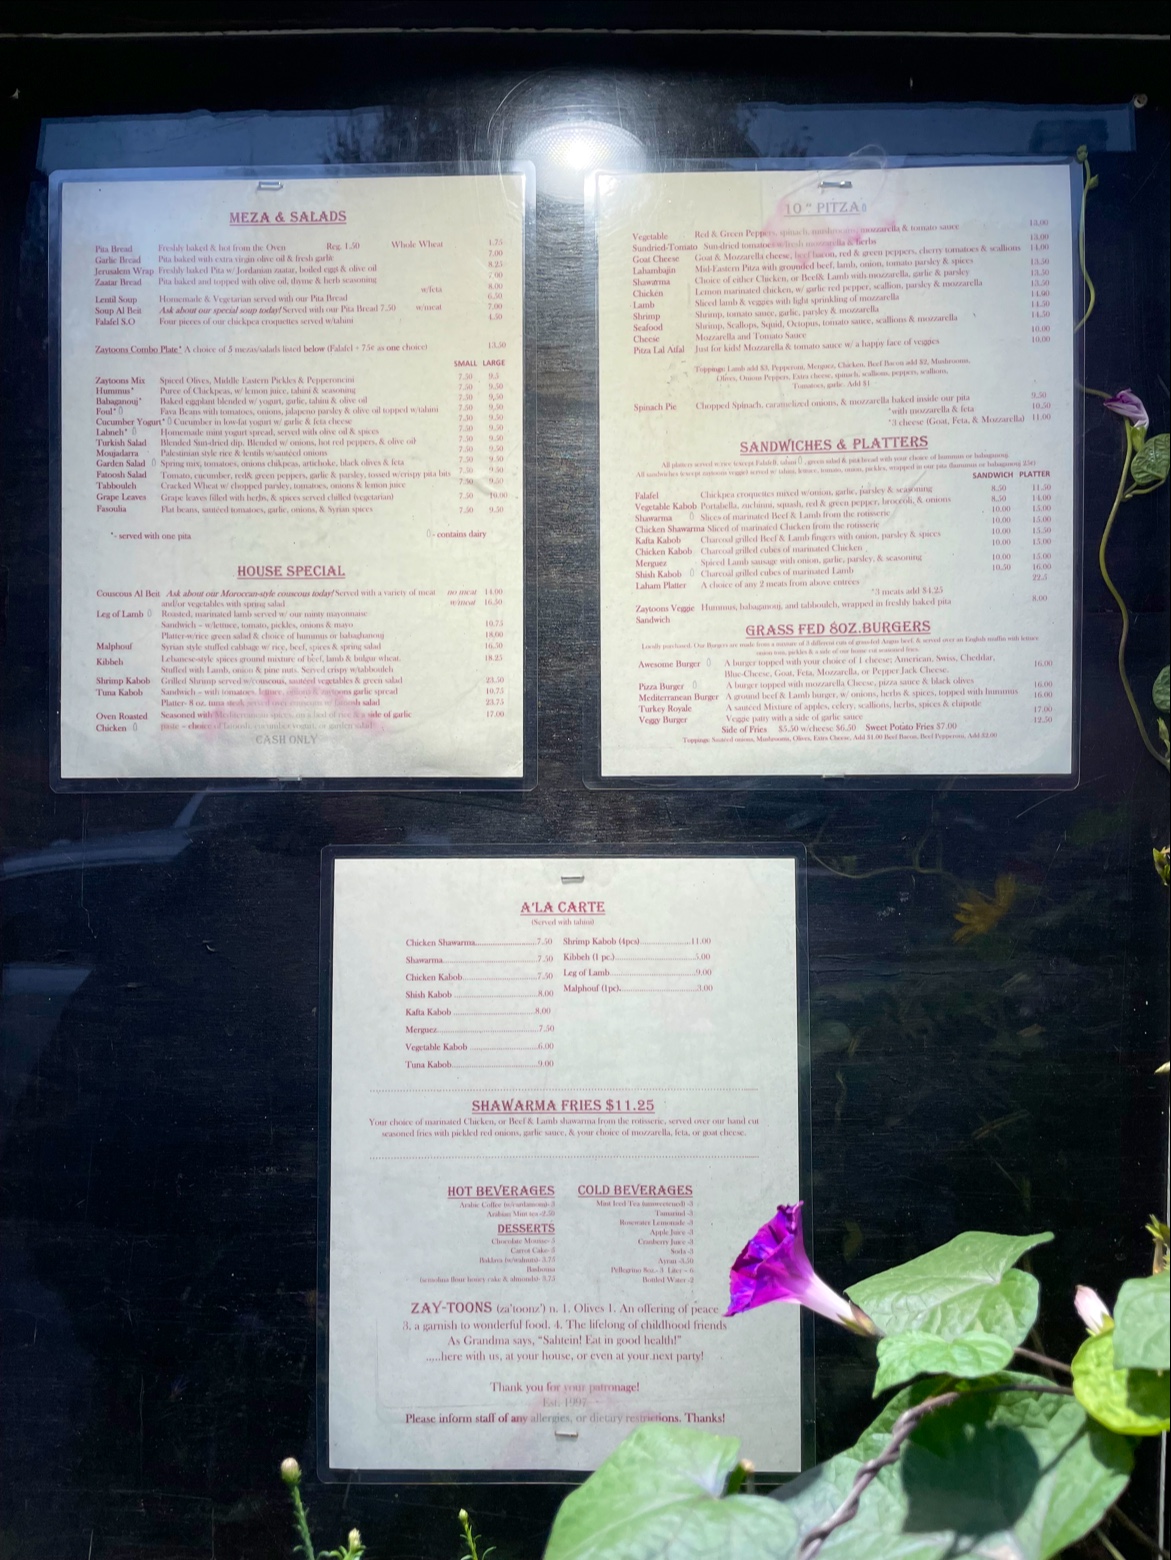 MEZA & SALADS
Pita Bread Freshly baked & hot from the Oven Reg. 1.50 Whole Wheat 1.75
Garlic Bread Pita baked with extra virgin olive oil & fresh garlic 7.00
Jerusalem Wrap Freshly baked Pita w/ Jordanian zaatar, boiled egg & olive oil 8.25
Zaatar Bread Pita baked and topped with olive oil, thyme & herb seasoning 7.00
w/feta 8.00
Lentil Soup Homemade & Vegetarian served with our Pita Bread 6.50
Soup Al Beit Ask about our special soup today! Served with our Pita Bread 7.50 w/meat
Falafel S.O Four pieces of our chickpea croquettes served w/tahini
Zaytoons Combo Plate* A choice of 5 mezo/salads listed below (Falafel + 75¢ as one choice) 13.50
SMALL LARGE
Zaytoons Mix Spiced Olives, Middle Eastern Pickles & Pepperoncini 7.50 9.5
Hummus* Puree of Chickpeas, w/ lemon juice, tahini & seasoning 7.50 9.50
Babaganouj* Baked eggplant blended w/ yogurt, garlic, tahini & olive oil 7.50 9.50
Foul* Fava Beans with tomatoes, onions, jalapeno parsley & olive oil topped w/tahini 7.50 9.50
Cucumber Yogurt* Cucumber in low-fat yogurt w/ garlic & feta cheese 7.50 9.50
Labneh* Homemade mint yogurt spread, served with olive oil & spices 7.50 9.50
Turkish Salad Blended Sun-dried dip. Blended w/ onions, hot red peppers, & olive oil 7.50 9.50
Moujadarra Palestinian style rice & lentils w/sauteed onions 7.50 9.50
Garden Salad Spring mix, tomatoes, onions chikpeas, artichoke, black olives & feta 7.50 9.50
Fatoosh Salad Tomato, cucumber, red& green peppers, garlic & parsley, tossed w/crispy pita bits 7.50 9.50
Tabbouleh Cracked Wheat w/ chopped parsley, tomatoes, onions & lemon juice 7.50 9.50
Grape Leaves Grape leaves filled with herbs, & spices served chilled (vegetarian) 7.50 10.00
Fasoulia Flat beans, sauteed tomatoes, garlic, onions, & Syrian spices 7.50 9.50
*- served with one pita - contains dairy
HOUSE SPECIAL
Couscous Al Beit Ask about our Moroccan-style couscous today! Served with a variety of meat no meat 14.00
and/or vegetables with spring salad w/meat 16.50
Leg of Lamb Roasted, marinated lamb served w/ our minty mayonnaise
Sandwich – w/lettuce, tomato, pickles, onions & mayo 10.75
Platter-w/rice green salad & choice of hummus or babaghanouj 18.00
Malphouf Syrian style stuffed cabbage w/ rice, beef, spices & spring salad 16.50
Kibbeh Lebanese-style spices ground mixture of beef, lamb & bulgur wheat. 18.25
Stuffed with Lamb, onion & pine nuts. Served crispy w/tabbouleh
Shrimp Kabob Grilled Shrimp served w/couscous, sauteed vegetables & green salad 23.50
Tuna Kabob Sandwich – with tomatoes, lettuce, olives & zaytoons garlic spread 10.75
Platter- 8 oz. tuna steak served over couscous w/ fatoosh salad 23.75
Oven Roasted Seasoned with Mediterranean spices, on a bed of rice & a side of garlic 17.00
Chicken paste – choice of fatoosh, cucumber yogurt, or garden salad
CASH ONLY
10 " PITZA
Vegetable Red & Green Peppers, spinach, mushrooms, mozzarella & tomato sauce 13.00
Sundried-Tomato Sun-dried tomatoes w/fresh mozzarella & herbs 13.00
Goat Cheese Goat & Mozzarella cheese, beef bacon, red & green peppers, cherry tomatoes & scallions 14.00
Lahambajin Mid-Eastern Pitza with grounded beef, lamb, onion, tomato parsley & spices 13.50
Shawarma Choice of either Chicken, or Beef& Lamb with mozzarella, garlic & parsley 13.50
Chicken Lemon marinated chicken, w/ garlic red pepper, scallion, parsley & mozzarella 13.50
Lamb Sliced lamb & veggies with light sprinkling of mozzarella
Shrimp Shrimp, tomato sauce, garlic, parsley & mozzarella 14.50
Seafood Shrimp, Scallops, Squid, Octopus, tomato sauce, scallions & mozzarella 14.50
Cheese Mozzarella and Tomato Sauce 10.00
Pitza Lal Atfal Just for kids! Mozzarella & tomato sauce w/ a happy face of veggies 10.00
Toppings: Lamb add $3, Pepperoni, Merguez, Chicken, Beef Bacon add $2, Mushrooms,
Olives, Onions Peppers, Extra cheese, spinach, scallions, peppers, scallions,
Tomatoes, garlic. Add $1
Spinach Pie Chopped Spinach, caramelized onions, & mozzarella baked inside our pita 9.50
*with mozzarella & feta 10.50
*3 cheese (Goat, Feta, & Mozzarella) 11.00
SANDWICHES & PLATTERS
SANDWICH PLATTER
Falafel Chickpea croquettes mixed w/onion, garlic, parsley & seasoning 8.50 11.50
Vegetable Kabob Portabella, zucchini, squash, red & green pepper, broccoli, & onions 8.50 14.00
Shawarma Slices of marinated Beef & Lamb from the rotisserie 10.00 15.00
Chicken Shawarma Sliced of marinated Chicken from the rotisserie 10.00 15.00
Kafta Kabob Charcoal grilled Beef & Lamb fingers with onion, parsley & spices 10.00 15.50
Chicken Kabob Charcoal grilled cubes of marinated Chicken 10.00 15.00
Merguez Spiced Lamb sausage with onion, garlic, parsley, & seasoning 10.00 15.00
Shish Kabob Charcoal grilled cubes of marinated Lamb 10.50 16.00
Laham Platter A choice of any 2 meats from above entrées 22.5
*3 meats add $4.25
Zaytoons Veggie Hummus, babaganouj, and tabbouleh, wrapped in freshly baked pita 8.00
Sandwich
GRASS FED 8OZ.BURGERS
Awesome Burger A burger topped with your choice of 1 cheese; American, Swiss, Cheddar, 16.00
Blue-Cheese, Goat, Feta, Mozzarella, or Pepper Jack Cheese.
Pizza Burger A burger topped with mozzarella Cheese, pizza sauce & black olives 16.00
Mediterranean Burger A ground beef & Lamb burger, w/ onions, herbs & spices, topped with hummus 16.00
Turkey Royale A sauteed Mixture of apples, celery, scallions, herbs, spices & chipotle 17.00
Veggy Burger Veggie patty with a side of garlic sauce 12.50
Side of Fries $5.50 w/cheese $6.50 Sweet Potato Fries $7.00
Toppings: Sauteed onions, Mushrooms, Olives, Extra Cheese, Add $1.00 Beef Bacon, Beef Pepperoni, Add $2.00
A'LA CARTE
(Served with tahini)
Chicken Shawarma 7.50 Shrimp Kabob (4pcs) 11.00
Shawarma 7.50 Kibbeh (1 pc.) 5.00
Chicken Kabob 7.50 Leg of Lamb 9.00
Shish Kabob 8.00 Malphouf (1pc) 3.00
Kafta Kabob 8.00
Merguez 7.50
Vegetable Kabob 6.00
Tuna Kabob 9.00
SHAWARMA FRIES $11.25
Your choice of marinated Chicken, or Beef & Lamb shawarma from the rotisserie, served over our hand cut
seasoned fries with pickled red onions, garlic sauce, & your choice of mozzarella, feta, or goat cheese.
HOT BEVERAGES
Arabic Coffee (w/cardamom)-3
Arabian Mint tea -2.50
DESSERTS
Chocolate Mousse- 5
Carrot Cake- 5
Baklava (w/walnuts)- 3.75
Basbousa
(semolina flour honey cake & almonds)- 3.75
COLD BEVERAGES
Mint Iced Tea (unsweetened) -3
Tamarind -3
Rosewater Lemonade -3
Apple Juice -3
Cranberry Juice -3
Soda -3
Ayran -3.50
Pellegrino 8oz.– 3 Liter – 6
Bottled Water -2
ZAY-TOONS (za'toonz') n. 1. Olives 1. An offering of peace
3. a garnish to wonderful food. 4. The lifelong of childhood friends
As Grandma says, "Sahtein! Eat in good health!"
.....here with us, at your house, or even at your next party!
Thank you for your patronage!
Est. 1997
Please inform staff of any allergies, or dietary restrictions. Thanks!